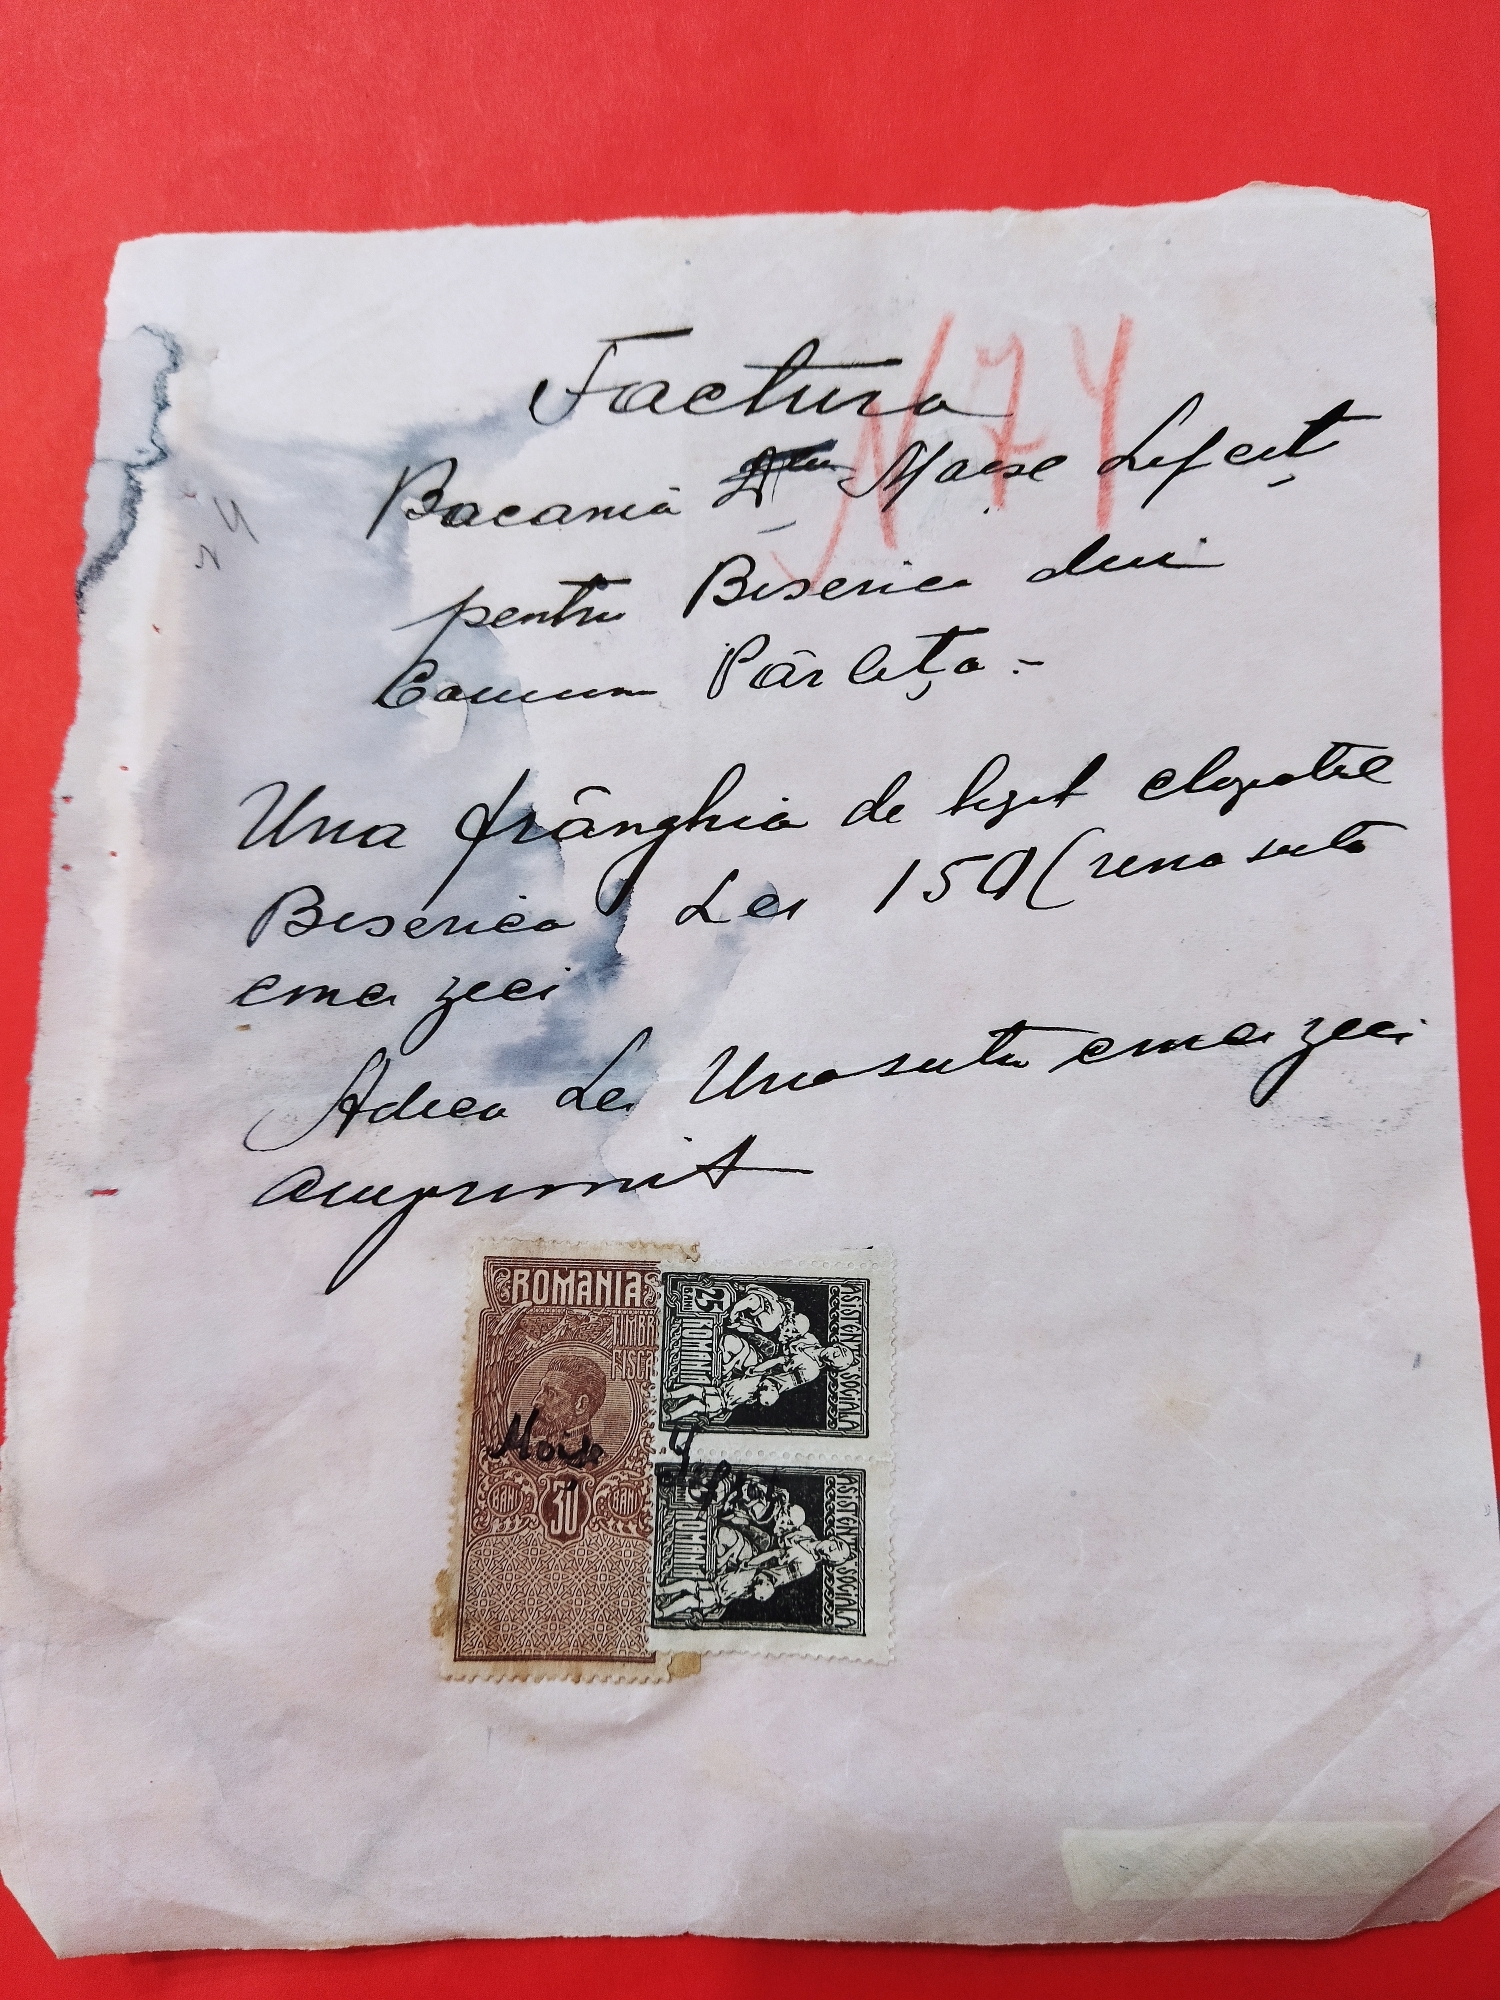 Factura
N 74
Bacania Moise
pentru Biserica din
Comuna Pârlița :-
Una frânghia de legat clopotele
Biserica Lei 150 (una suta
cinci zeci
Adica Lei Una suta cinci zeci
am primit
ROMANIA
TIMBR
FISCA
Moise
BANI 30 BANI
ASISTENȚA SOCIALA
25 BANI
ROMANIA
ASISTENȚA SOCIALA
ROMANIA